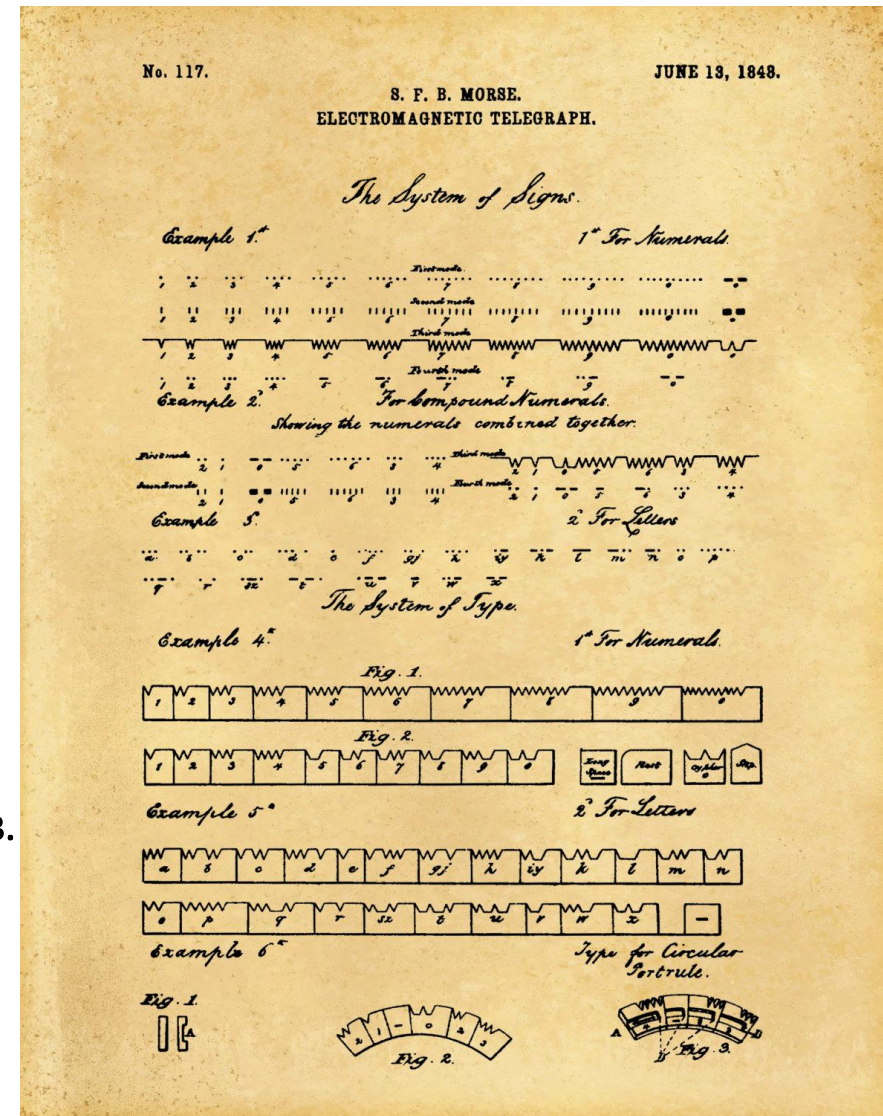 No. 117. JUNE 13, 1848.
S. F. B. MORSE.
ELECTROMAGNETIC TELEGRAPH.
The System of Signs.
Example 1.st 1st For Numerals.
First mode.
1 2 3 4 5 6 7 8 9 0 0
Second mode
1 2 3 4 5 6 7 8 9 0 0
Third mode
1 2 3 4 5 6 7 8 9 0 0
Fourth mode
1 2 3 4 5 6 7 8 9 0
Example 2. For Compound Numerals.
Showing the numerals combined together.
First mode 2 1 0 5 6 3 4 Third mode 2 1 0 5 6 3 4
Second mode 2 1 0 5 6 3 4 Fourth mode 2 1 0 5 6 3 4
Example 3. 2d For Letters
a b c d e f gj h iy k l m n o p
q r sz t u v w x
The System of Type.
Example 4. 1st For Numerals.
Fig. 1.
1 2 3 4 5 6 7 8 9 0
Fig. 2.
1 2 3 4 5 6 7 8 9 0 Long Space Rest Cypher 0 Stop.
3.
Example 5 2d For Letters
a b c d e f gj h iy k l m n
o p q r sz t u v w x –
Example 6 Type for Circular
Portrule.
Fig. 1.
A
2 1 – 0 2 3
Fig. 2.
A B
Fig. 3.